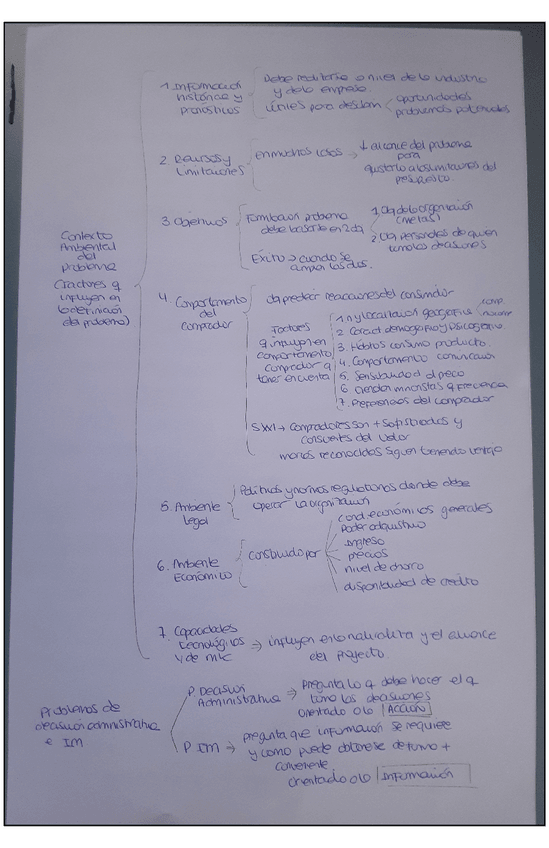 Contexto
Ambiental
del
problema
(factores q
influyen en
la definición
del problema)
1. Información
histórica y
pronósticos
Debe realizarse a nivel de la industria
y de la empresa.
útiles para
oportunidades
problemas potenciales
2. Recursos y
limitaciones
en muchos casos → ↓ alcance del problema
para
ajustarlo a las limitaciones del
presupuesto.
3 Objetivos
Formulación problema
debe basarse en 2 obj
1. Obj de la organización
(metas)
2 Obj personales de quien
toma las decisiones
Éxito → cuando se
cumplan los dos.
4 Comportamiento
del
comprador
obj predecir reacciones del consumidor
Factores
q influyen en
comportamiento
comprador q
tener en cuenta
1. n y localización geográfica
2 Caract demográfico y psicológico
3. Hábitos consumo producto
4. Comportamiento
5. Sensibilidad al precio
6 tiendas minoristas q frecuencia
7. Preferencias del comprador
SXXI → compradores son + sofisticados y
del valor
marcas reconocidas siguen teniendo
5. Ambiente
legal
Políticas y normas regulatorias donde debe
operar la organización
6. Ambiente
Económico
constituido por
cond. económicas generales
Poder adquisitivo
ingreso
precios
nivel de ahorro
disponibilidad de crédito
7. Capacidades
tecnológicas
y de mk
→ influyen en la naturaleza y el alcance
del proyecto.
Problemas de
decisión administrativa
e IM
P Decisión
Administrativa
→ Pregunta lo q debe hacer el q
toma las decisiones
orientado a la ACCIÓN
P IM → pregunta que información se requiere
y como puede obtenerse de forma +
conveniente
orientado a la Información